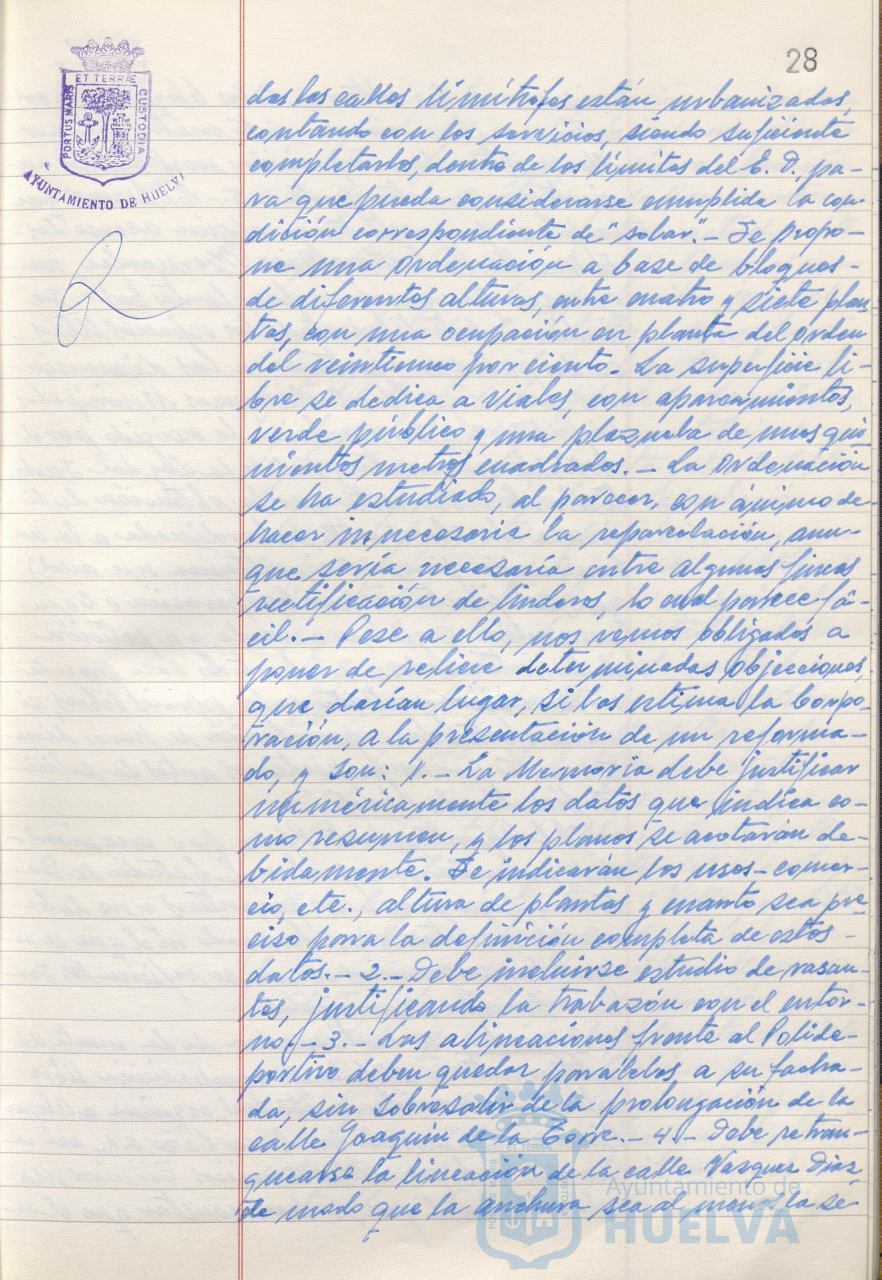 28
ET TERRÆ
PORTUS MARIS
CUSTODIA
AYUNTAMIENTO DE HUELVA
das las calles limítrofes están urbanizadas,
contando con los servicios, siendo suficiente
completarlos, dentro de los límites del E. D., pa-
ra que pueda considerarse cumplida la con-
dición correspondiente de "solar".- Se propo-
ne una ordenación a base de bloques-
de diferentes alturas, entre cuatro y siete plan
tas, con una ocupación en planta del orden
del veintiuno por ciento.- La superficie li-
bre se dedica a viales, con aparcamientos,
verde público y una plazuela de unos qui
nientos metros cuadrados.- La ordenación
se ha estudiado, al parecer, con ánimo de-
hacer innecesaria la reparcelación, aun-
que sería necesaria entre algunas fincas
rectificación de linderos, lo cual parece fá-
cil.- Pese a ello, nos vemos obligados a
poner de relieve determinadas objecciones,
que darían lugar, si las estima la Corpo-
ración, a la presentación de un reforma-
do, y son: 1.- La Memoria debe justificar
numéricamente los datos que indica co-
mo resumen, y los planos se acotarán de-
bidamente. Se indicarán los usos- comer-
cio, etc., altura de plantas y cuanto sea pre-
ciso para la definición completa de estos-
datos.- 2.- Debe incluirse estudio de rasan-
tes, justificando la trabazón con el entor-
no.- 3.- Las alineaciones frente al Polide-
portivo deben quedar paralelas a su facha-
da, sin sobresalir de la prolongación de la
calle Joaquín de la Torre.- 4.- Debe retran-
quearse la lineación de la calle Vazquez Diaz
de modo que la anchura sea al menos la se
Ayuntamiento de
HUELVA